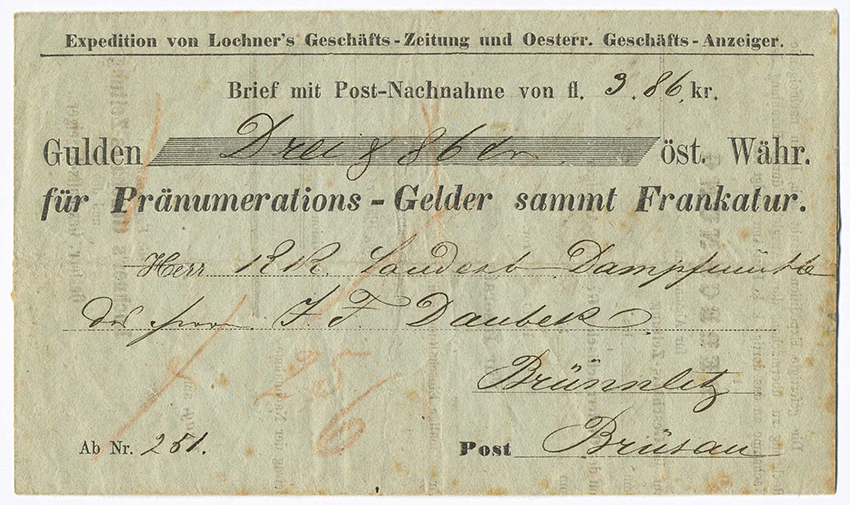 Expedition von Lochner's Geschäfts-Zeitung und Oesterr. Geschäfts-Anzeiger.
Brief mit Post-Nachnahme von fl. 3. 86. kr.
Gulden Drei & 86 öst. Währ.
für Pränumerations-Gelder sammt Frankatur.
Herr K.K. Dampfmühle
des Herrn J. F. Daubek
Brünnlitz
Ab Nr. 251. Post Brüsau
25/6